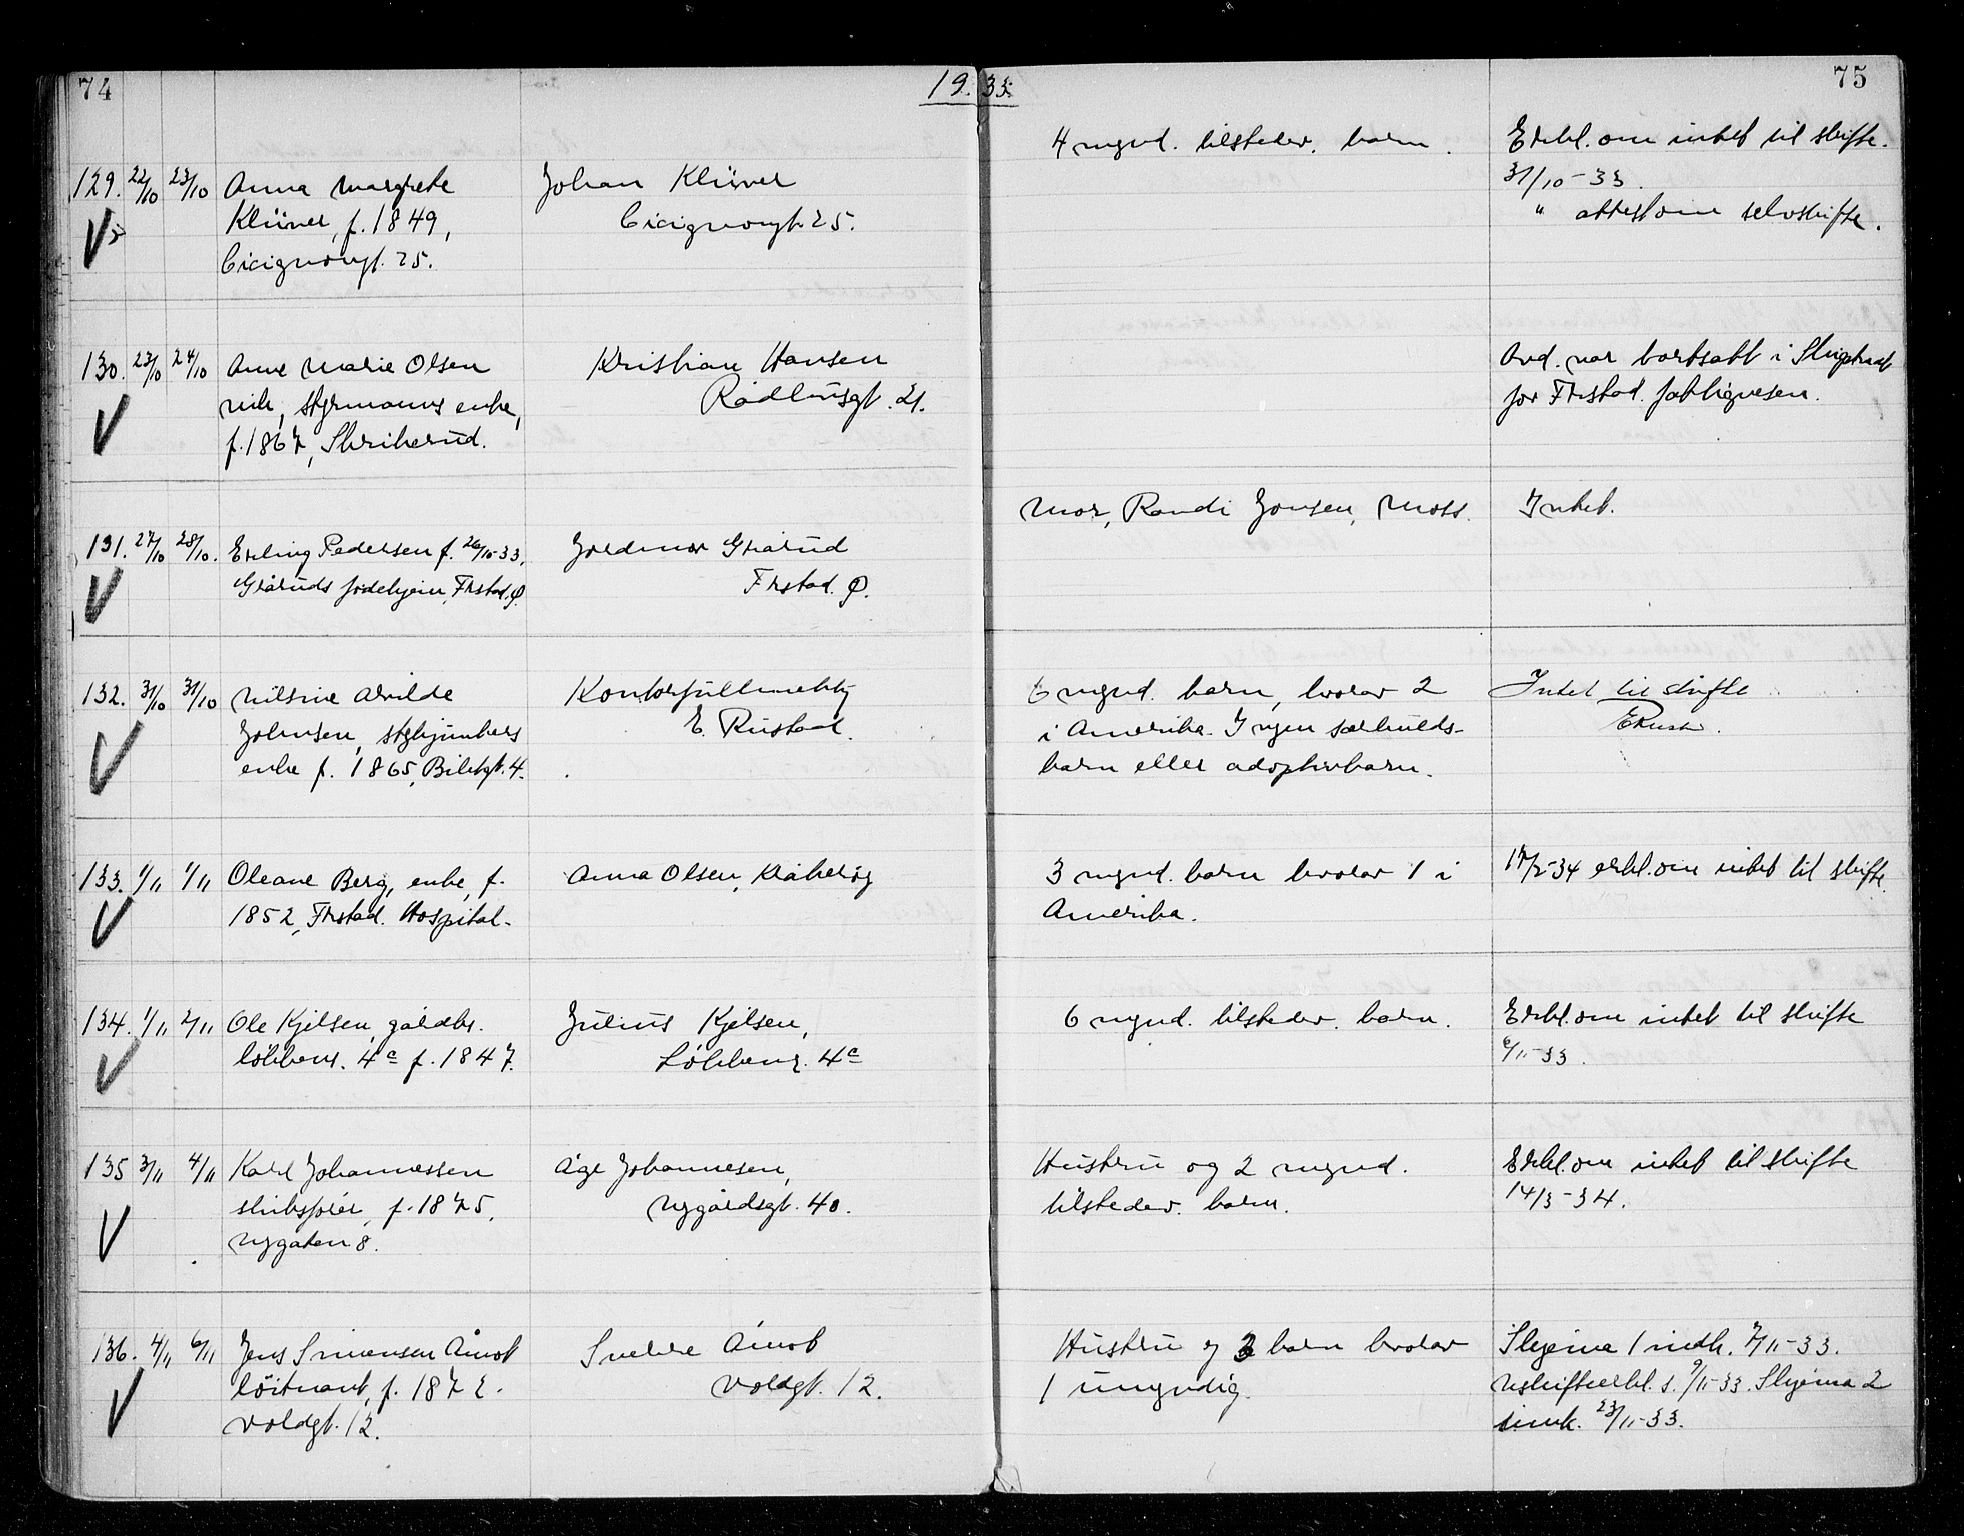 74
19.33.
75
129. 22/10 23/10 Anna Margrete
Klüver, f. 1849,
Cicignongt. 25.
Johan Klüver
Cicignongt. 25.
4 mynd. tilstedev. barn.
Erkl. om intet til skifte.
31/10-33.
" attest om selvskifte.
130. 23/10 24/10 Anne Marie Olsen
styrmanns enke,
f. 1867, Skrikerud.
Kristian Hansen
Rådhusgt. 21.
Avd. var bortsatt i
for Frstad. fattigvesen.
131. 27/10 28/10. Erling Pedersen f. 26/10-33.
Gråruds fødehjem, Frstad. Ø.
Jordmor Grårud
Frstad. Ø.
Mor, Randi Jonsen, Moss.
Intet.
132. 31/10 31/10 Nilsine Alvilde
Johnsen, styhjunkers
enke f. 1865, Biletgt. 4.
Kontorfullmektig
E. Rustad.
6 mynd. barn, hvorav 2
i Amerika. Ingen særkulds-
barn eller adoptivbarn.
Intet til skifte
ERustad.
133. 1/11 1/11 Oleane Berg, enke, f.
1852, Frstad. Hospital.
Anna Olsen, Kråkerøy
3 mynd. barn hvorav 1 i
Amerika.
17/2-34 erkl. om intet til skifte.
134. 1/11 2/11 Ole Kjelsen, gårdbr.
Løkkeng. 4c f. 1847.
Julius Kjelsen,
Løkkeng. 4c
6 mynd. tilstedev. barn.
Erkl. om intet til skifte
6/11-33.
135 3/11 4/11 Karl Johannessen
skibsfører, f. 1875,
Nygaten 8.
Åge Johannesen,
Nygårdsgt. 40.
Hustru og 2 mynd.
tilstedev. barn.
Erkl. om intet til skifte
14/3-34.
136. 4/11 6/11 Jens Simensen Åmot
løitnant, f. 1872.
Voldgt. 12.
Sverre Åmot
Voldgt. 12.
Hustru og 3 barn hvorav
1 umyndig.
Skjema 1 indk. 7/11-33.
Uskifteerkl. s. 9/11-33. Skjema 2
innk. 23/11-33.